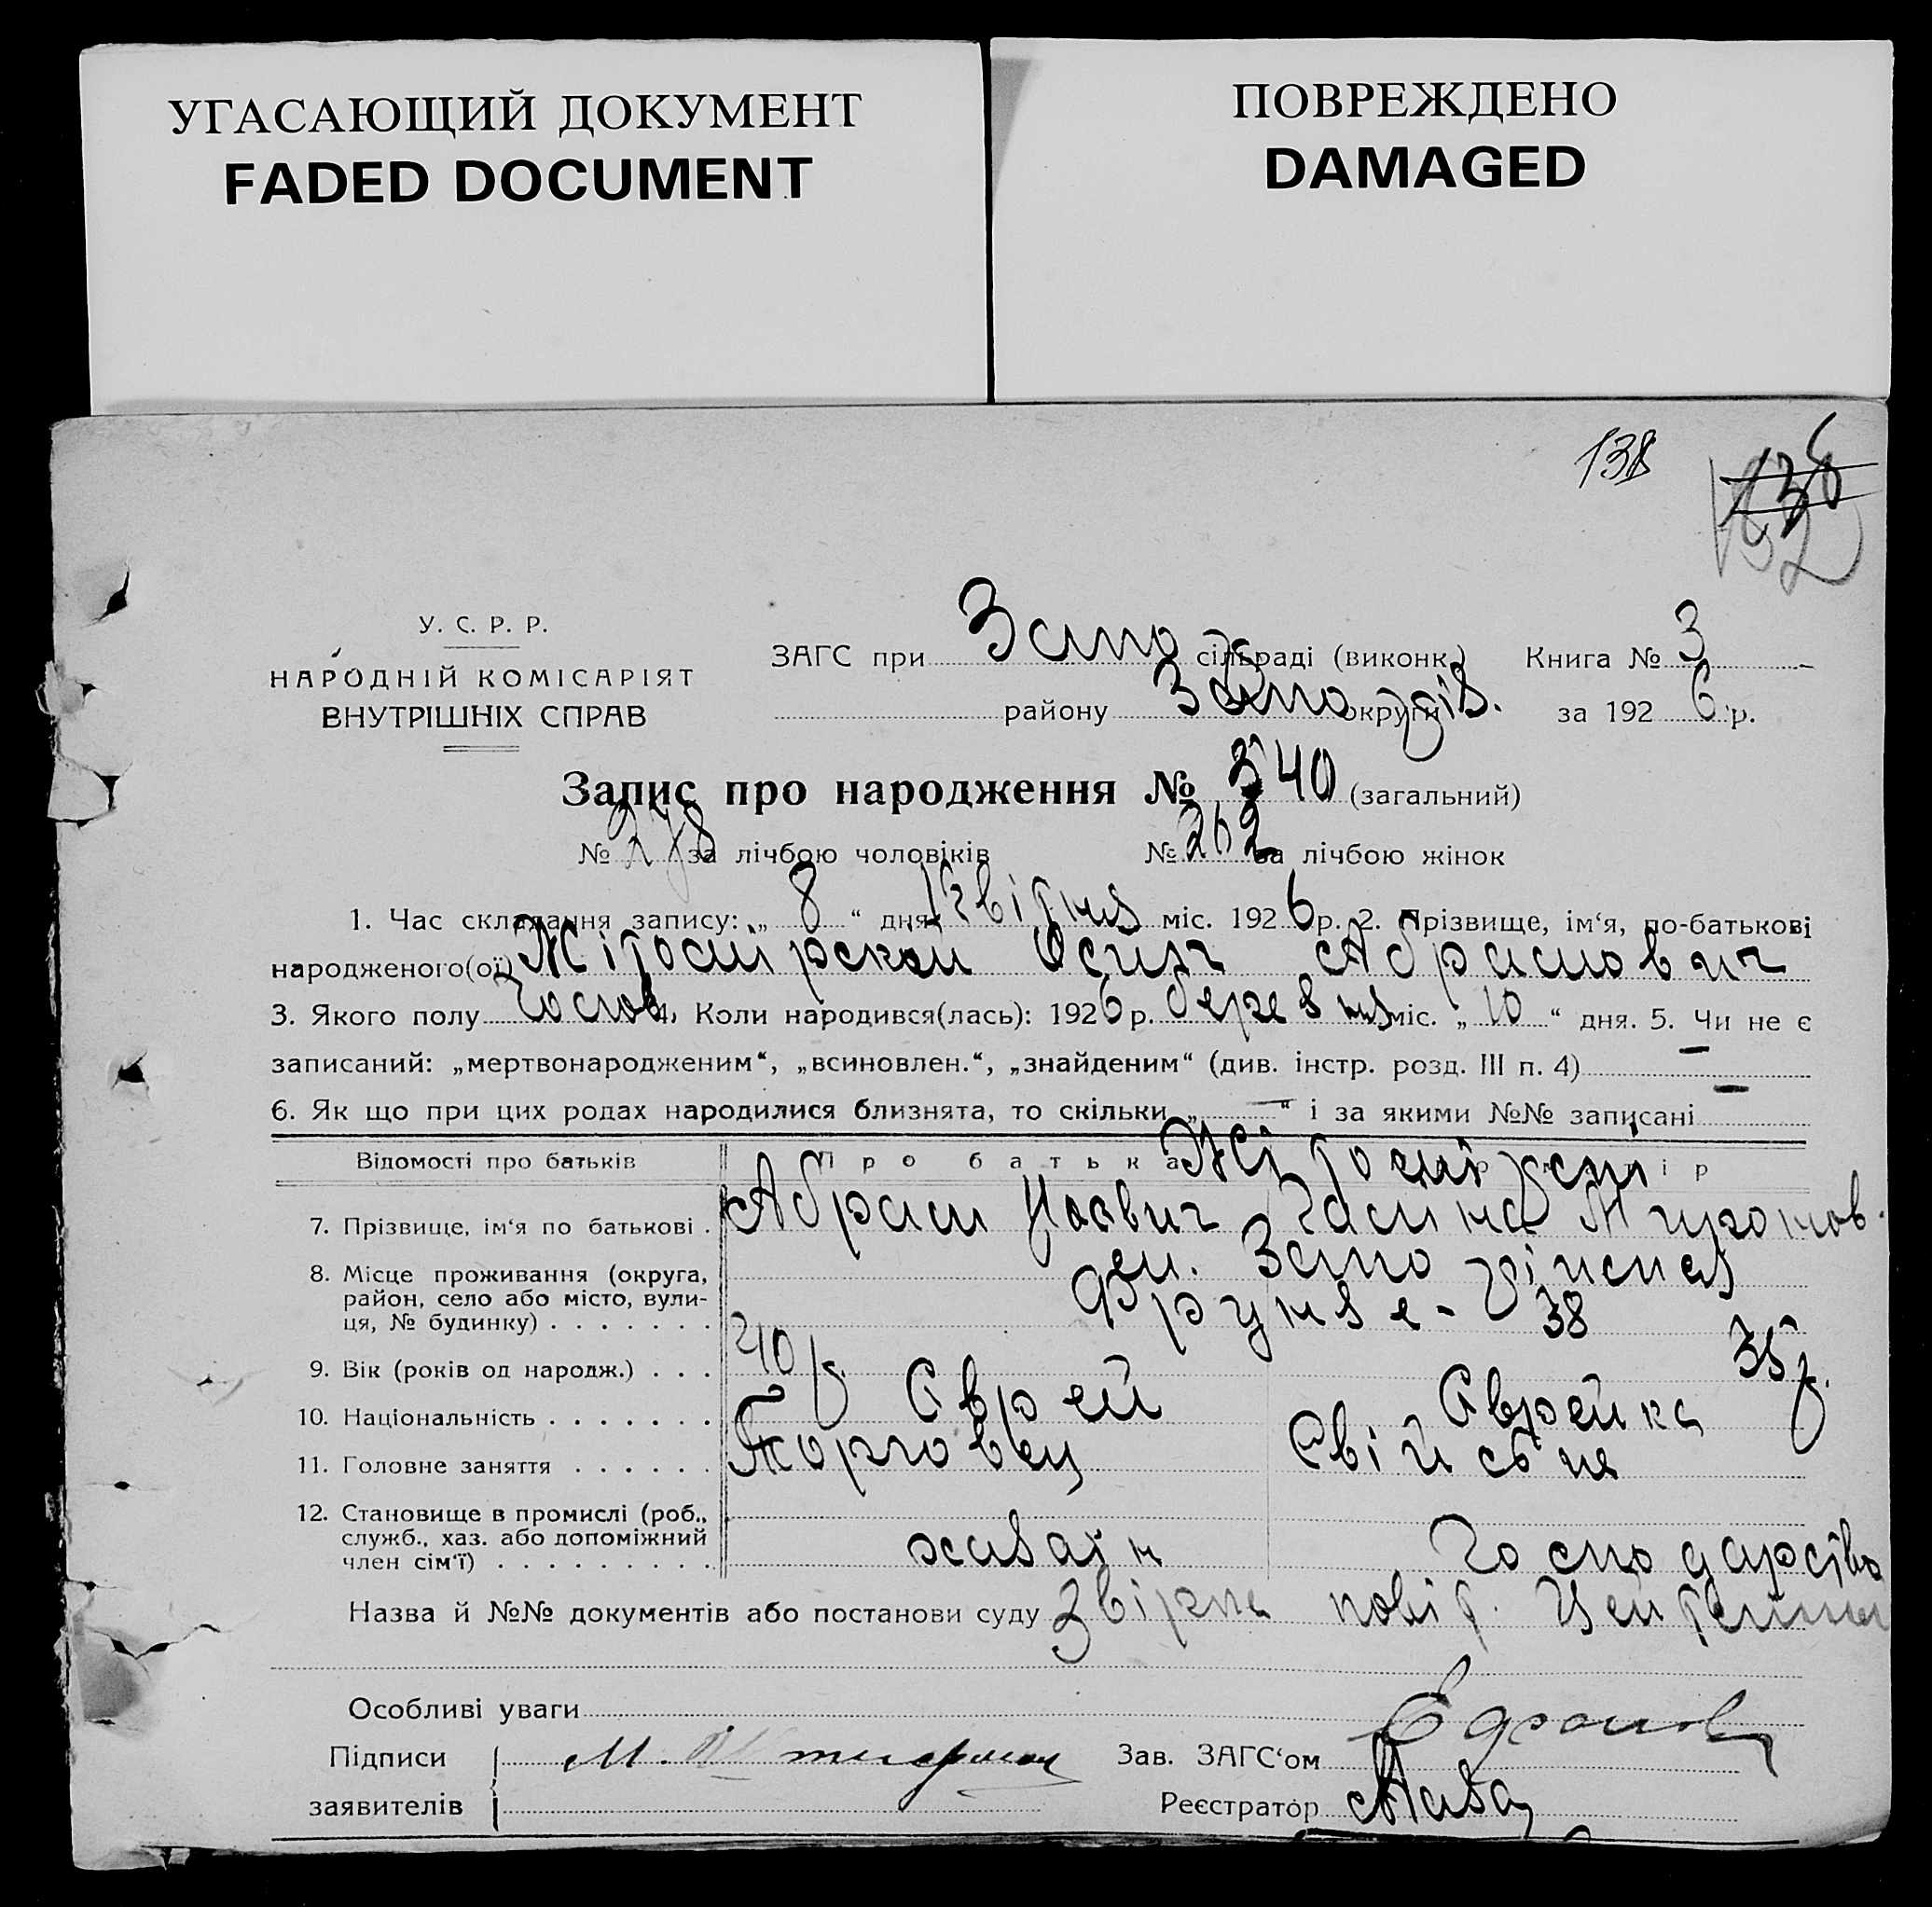 УГАСАЮЩИЙ ДОКУМЕНТ
FADED DOCUMENT
ПОВРЕЖДЕНО
DAMAGED
138
У. С. Р. Р.
НАРОДНІЙ КОМІСАРІЯТ
ВНУТРІШНІХ СПРАВ
ЗАГС при Запо сільраді (виконк.) Книга № 3
району Запоріз. округи за 1926 р.
Запис про народження № 540 (загальний)
№ 278 за лічбою чоловіків № 262 за лічбою жінок
1. Час складання запису: „ 8 “ дня Квітня міс. 1926 р. 2. Прізвище, ім‘я, по-батькові
народженого(ої) Абрамович
3. Якого полу Чолов. 4. Коли народився(лась): 1926 р. березня міс. „ 10 “ дня. 5. Чи не є
записаний: „мертвонародженим“, „всиновлен.“, „знайденим“ (див. інстр. розд. III п. 4) —
6. Як що при цих родах народилися близнята, то скільки „ — “ і за якими №№ записані —
Відомості про батьків Про батька
7. Прізвище, ім‘я по батькові . Абрам
8. Місце проживання (округа, район, село або місто, вули-
ця, № будинку) . . . . . . . Фрунзе - 38
9. Вік (років од народж.) . . . 40 р. 35 р.
10. Національність . . . . . . . Єврей Єврейка
11. Головне заняття . . . . . . Торговец
12. Становище в промислі (роб.,
служб., хаз. або допоміжний
член сім‘ї) . . . . . . . . . хазаїн Господарство
Назва й №№ документів або постанови суду
Особливі уваги
Підписи М. Зав. ЗАГС‘ом
заявителів Реєстратор